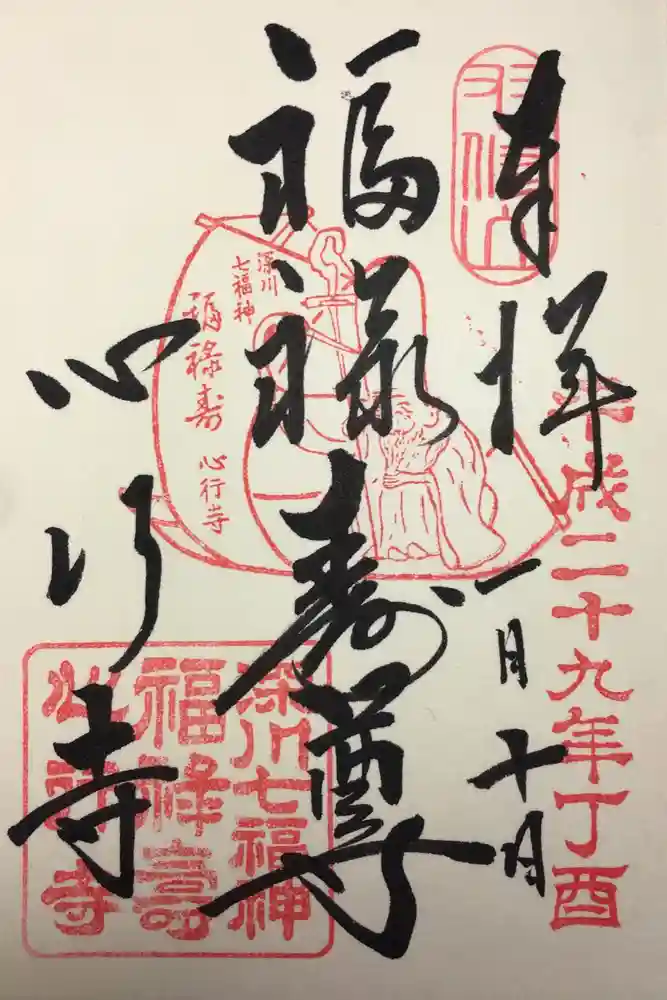 奉拝
平成二十九年丁酉
一月十日
福禄寿尊
心行寺
深川
七福神
福禄寿
心行寺
深川七福神
福禄壽
心行寺